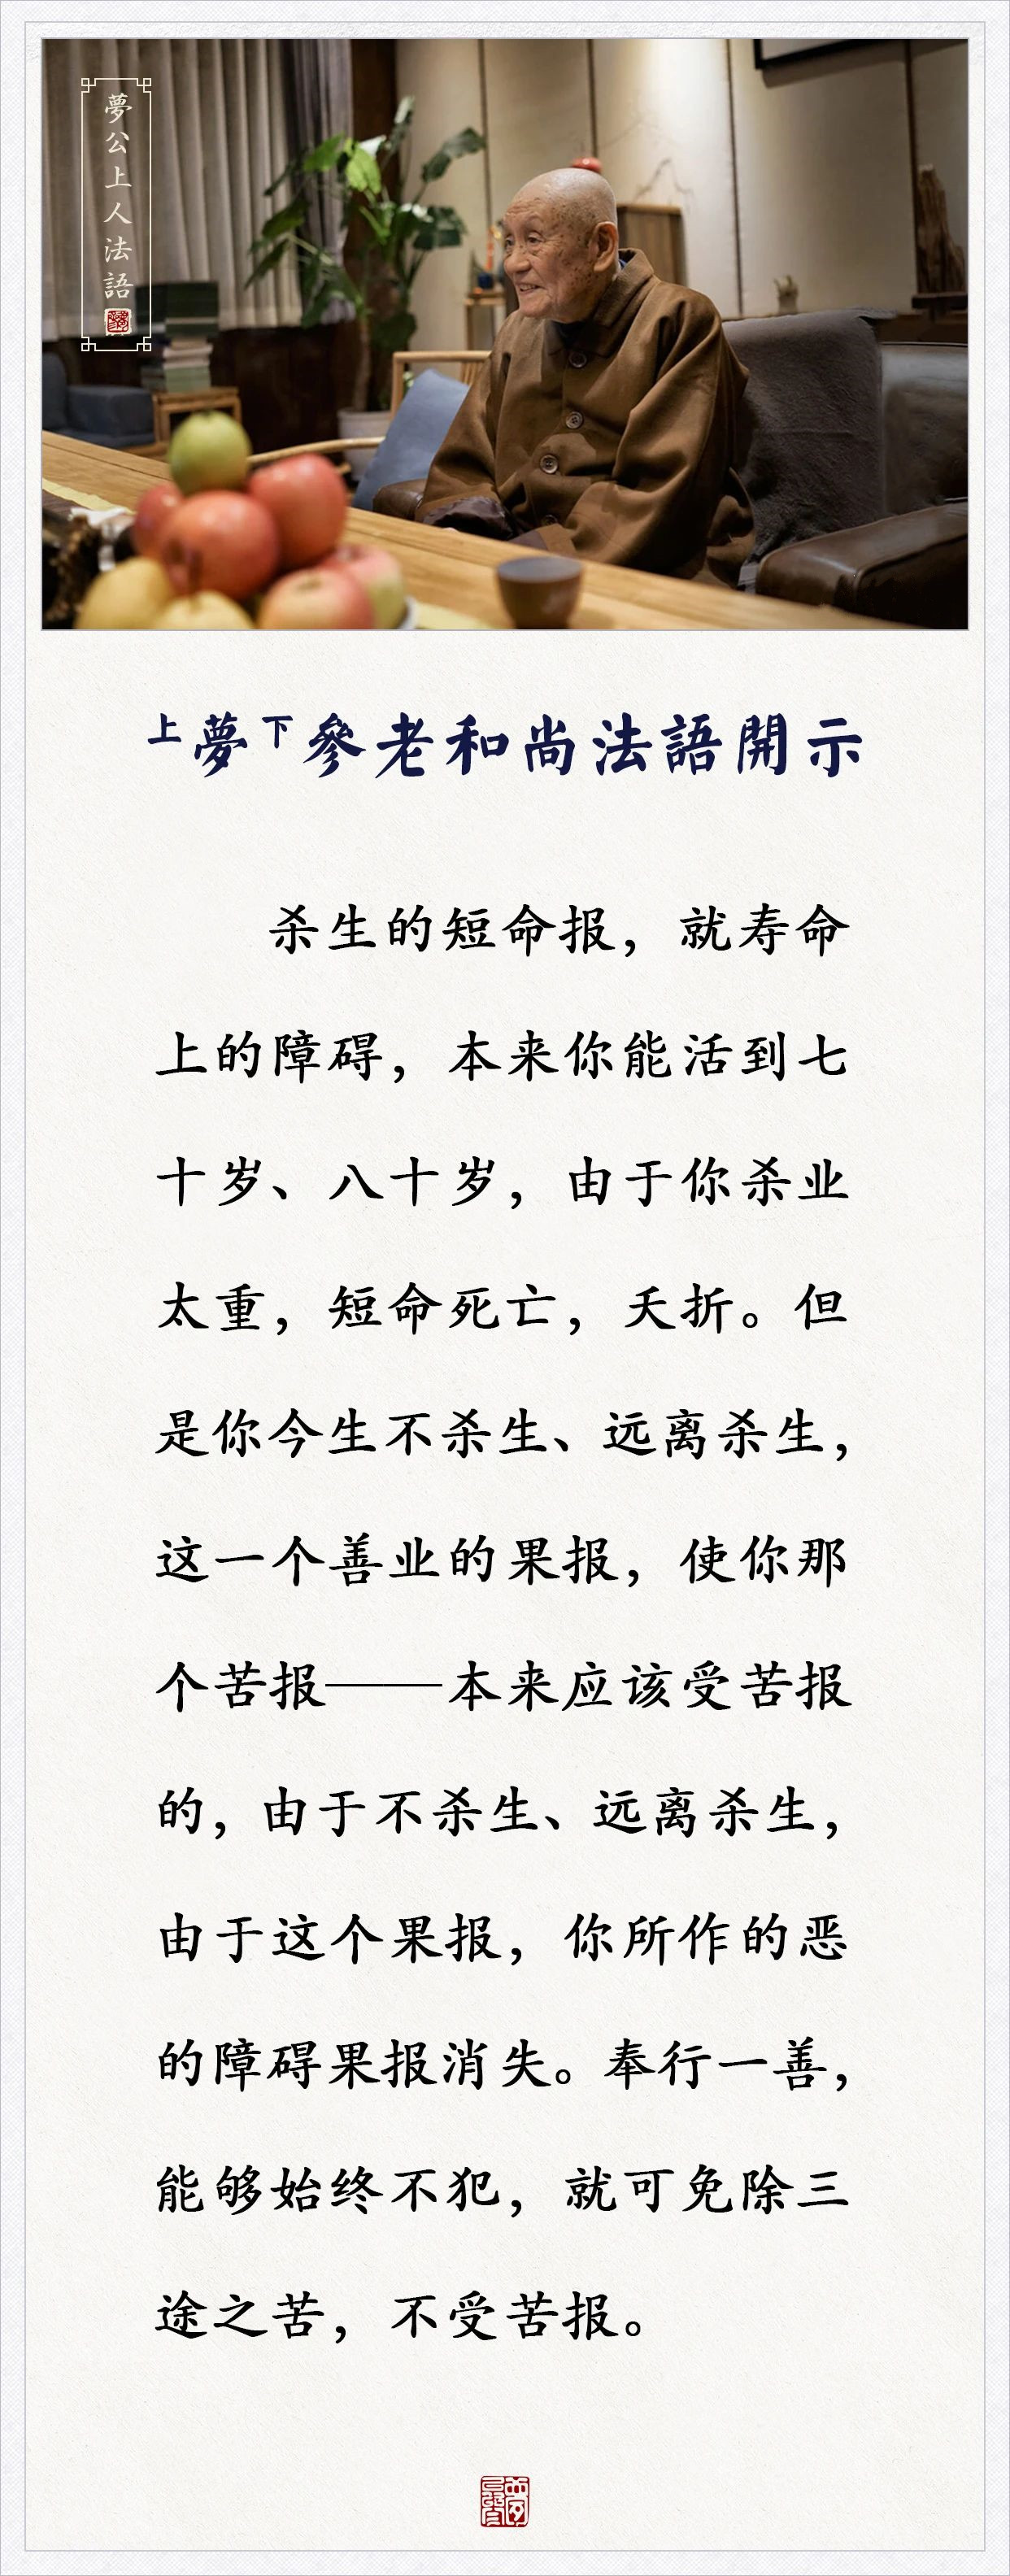 夢公上人法語
上夢下參老和尚法語開示
杀生的短命报，就寿命
上的障碍，本来你能活到七
十岁、八十岁，由于你杀业
太重，短命死亡，夭折。但
是你今生不杀生、远离杀生，
这一个善业的果报，使你那
个苦报——本来应该受苦报
的，由于不杀生、远离杀生，
由于这个果报，你所作的恶
的障碍果报消失。奉行一善，
能够始终不犯，就可免除三
途之苦，不受苦报。